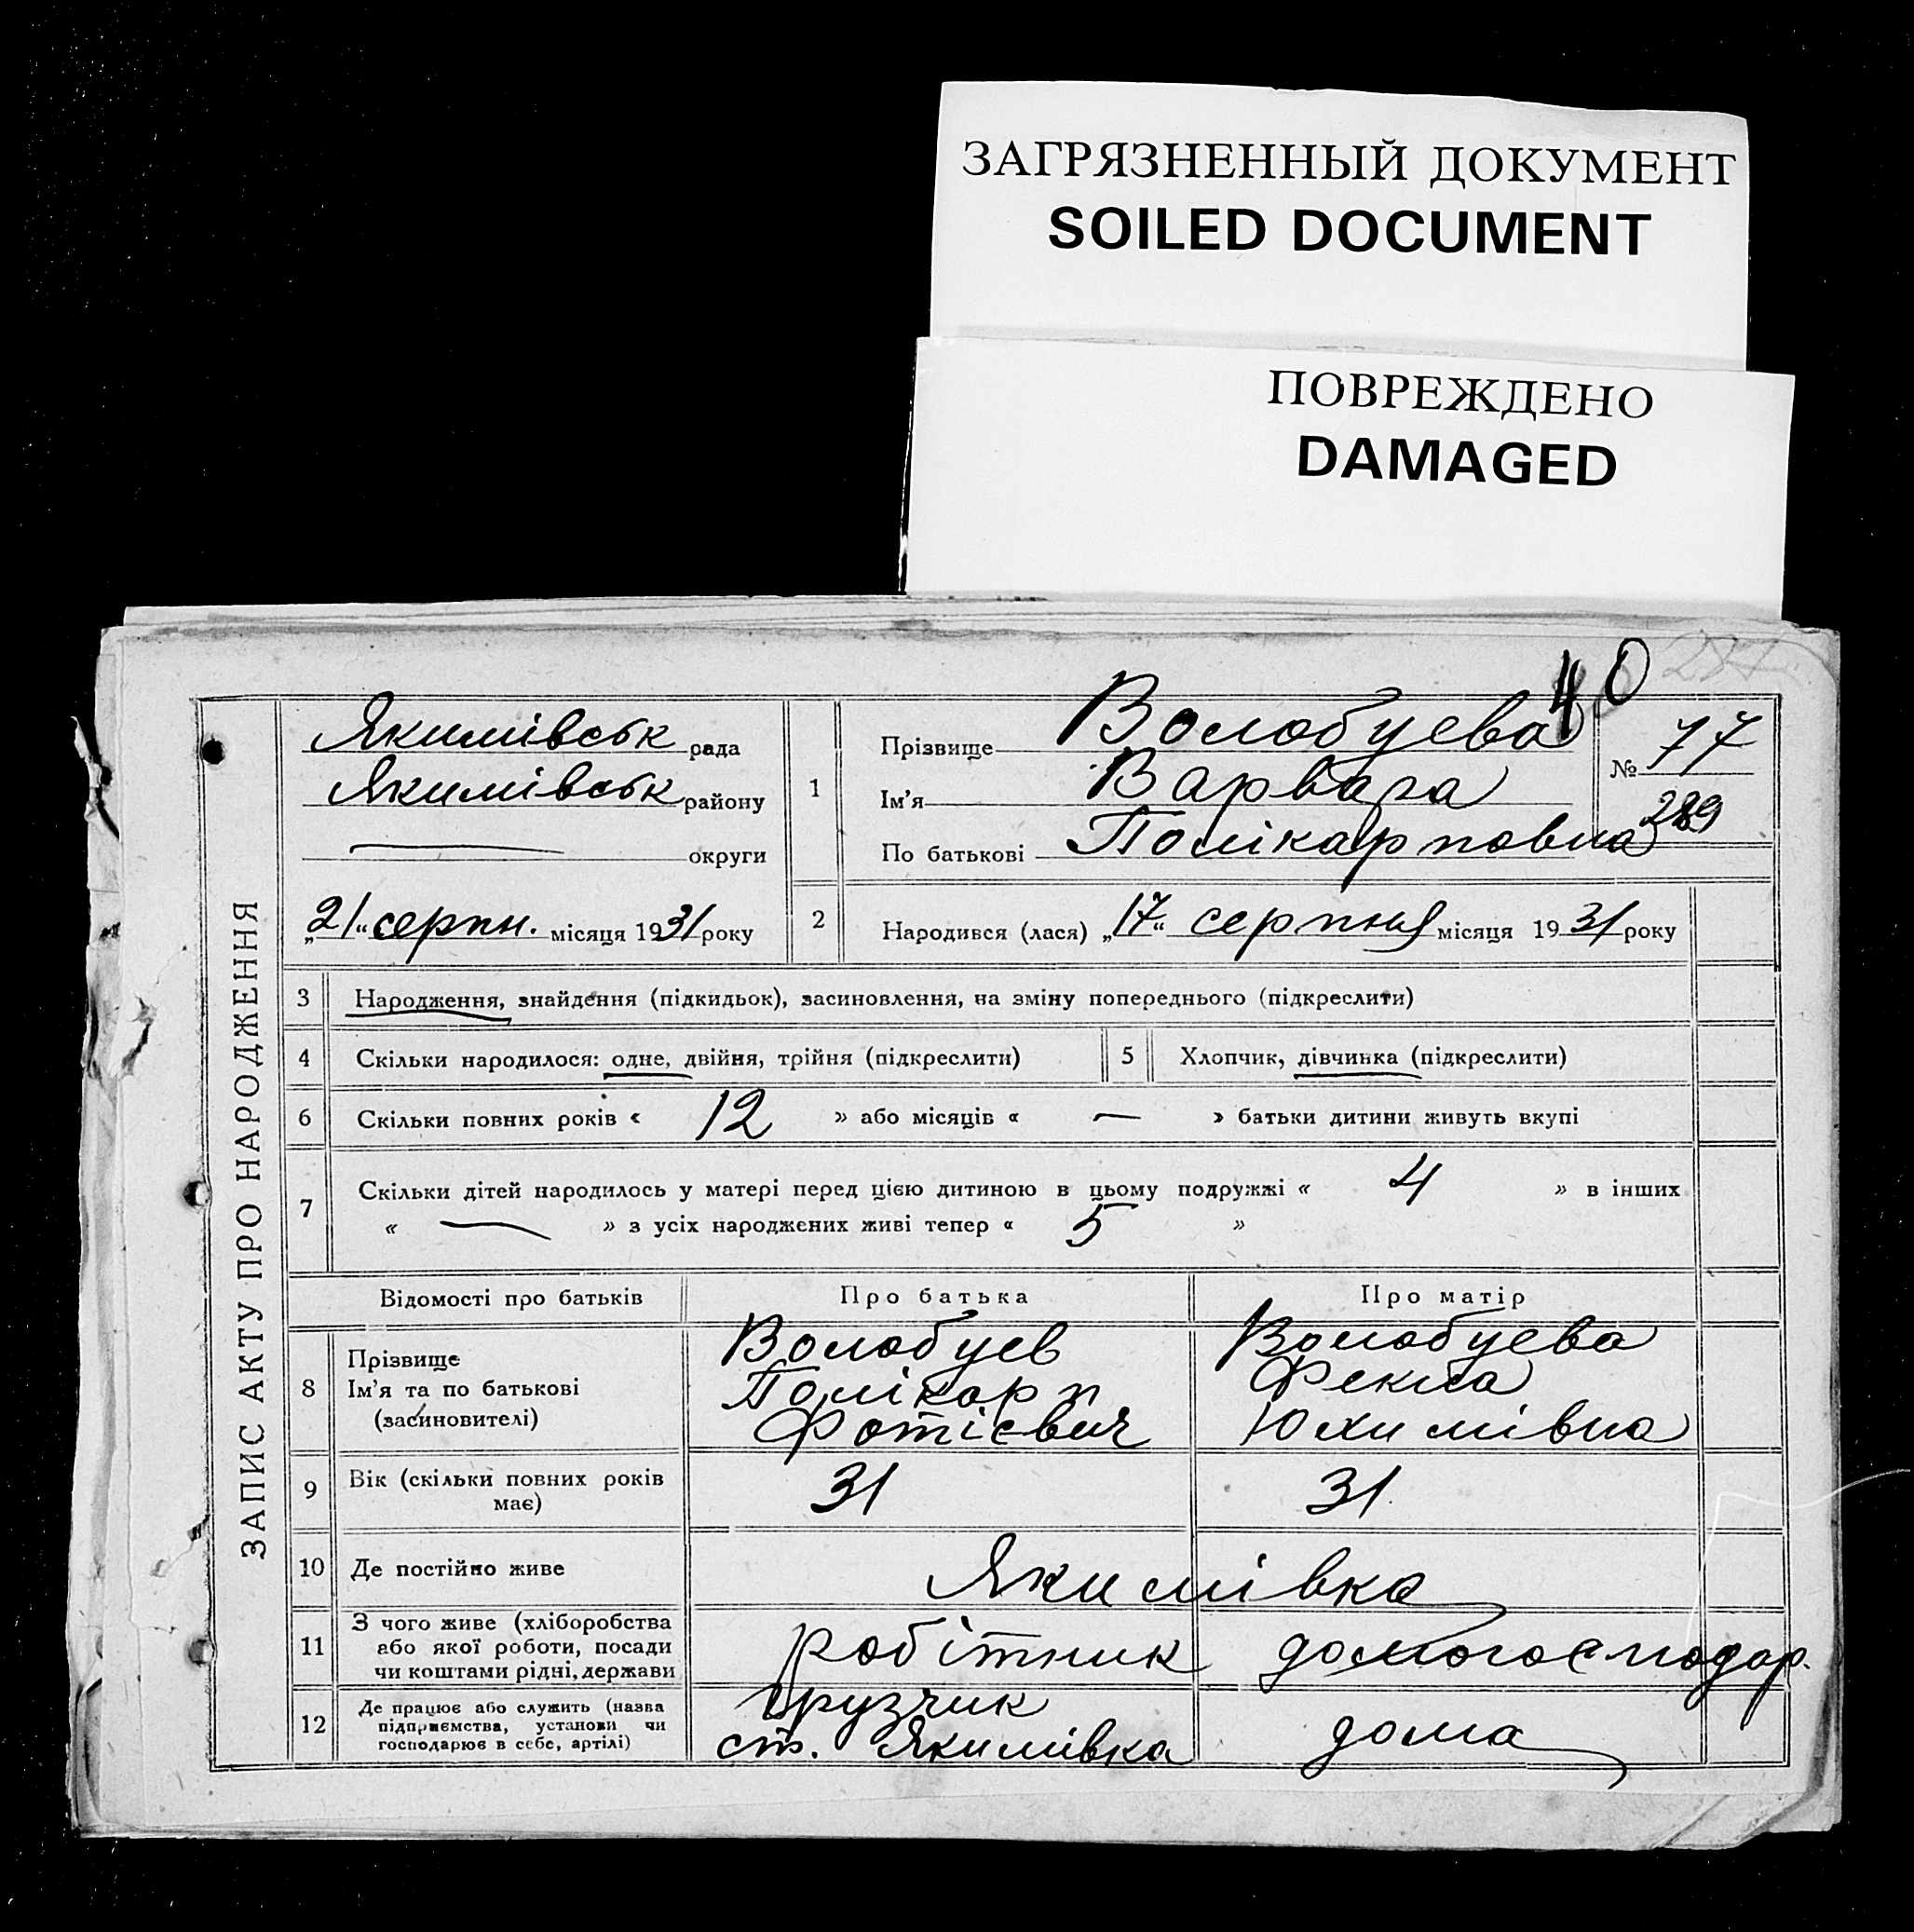 ЗАГРЯЗНЕННЫЙ ДОКУМЕНТ
SOILED DOCUMENT
ПОВРЕЖДЕНО
DAMAGED
40
ЗАПИС АКТУ ПРО НАРОДЖЕННЯ
Якимівськ рада
Якимівськ району
округи
„21“ серпн. місяця 1931 року
1
Прізвище Волобуева
Ім'я Варвара
По батькові Полікарповна
№ 77
289
2 Народився (лася) „17“ серпня місяця 1931 року
3 Народження, знайдення (підкидьок), засиновлення, на зміну попереднього (підкреслити)
4 Скільки народилося: одне, двійня, трійня (підкреслити) 5 Хлопчик, дівчинка (підкреслити)
6 Скільки повних років « 12 » або місяців « — » батьки дитини живуть вкупі
7 Скільки дітей народилось у матері перед цією дитиною в цьому подружжі « 4 » в інших
« — » з усіх народжених живі тепер « 5 »
Відомості про батьків Про батька Про матір
8 Прізвище
Ім'я та по батькові
(засиновителі)
Волобуев
Полікарп
Фотієвич
Волобуева
Фекла
Юхимівна
9 Вік (скільки повних років
має)
31 31
10 Де постійно живе Якимівка
11 З чого живе (хліборобства
або якої роботи, посади
чи коштами рідні, держави
робітник домогосподар.
12 Де працює або служить (назва
підприємства, установи чи
господарює в себе, артілі)
грузчик
ст. Якимівка
дома